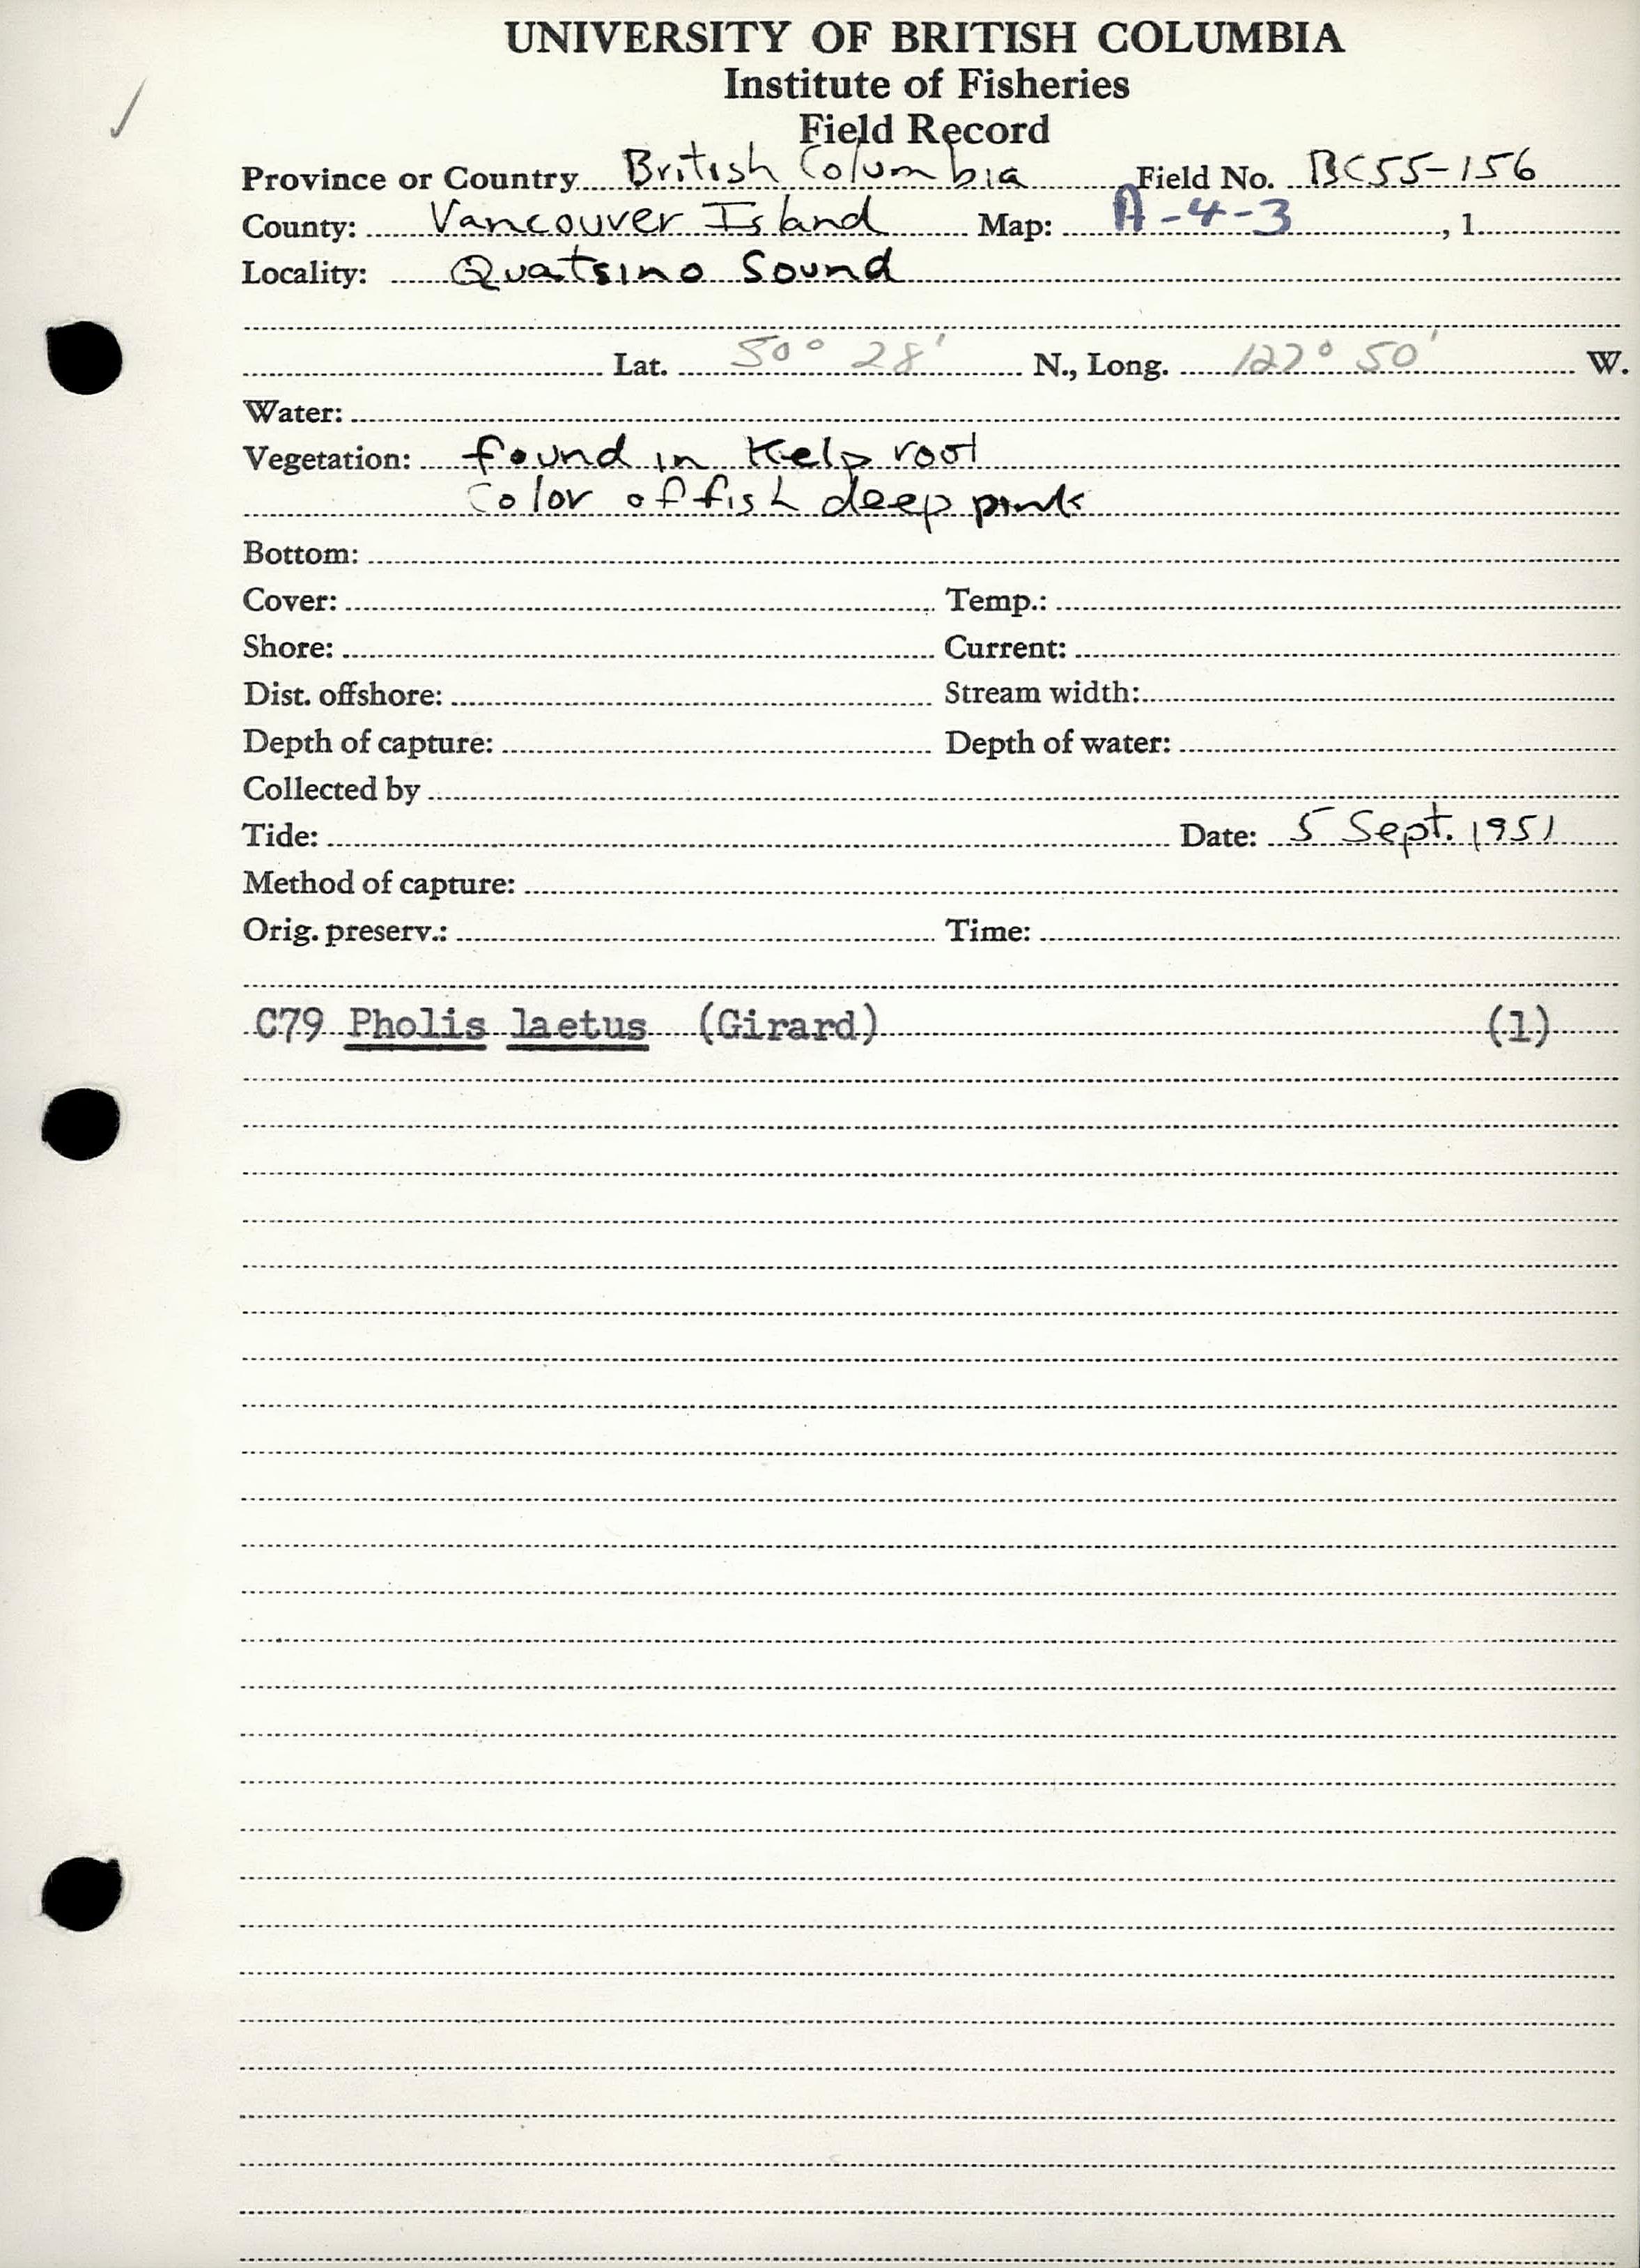 UNIVERSITY OF BRITISH COLUMBIA
Institute of Fisheries
Field Record
Province or Country British Columbia Field No. BC55-156
County: Vancouver Island Map: A-4-3 , 1
Locality: Quatsino Sound
Lat. 50° 28' N., Long. 127° 50' W.
Water:
Vegetation: found in Kelp root
Color of fish deep pink
Bottom:
Cover: Temp.:
Shore: Current:
Dist. offshore: Stream width:
Depth of capture: Depth of water:
Collected by
Tide: Date: 5 Sept. 1951
Method of capture:
Orig. preserv.: Time:
C79 Pholis laetus (Girard) (1)